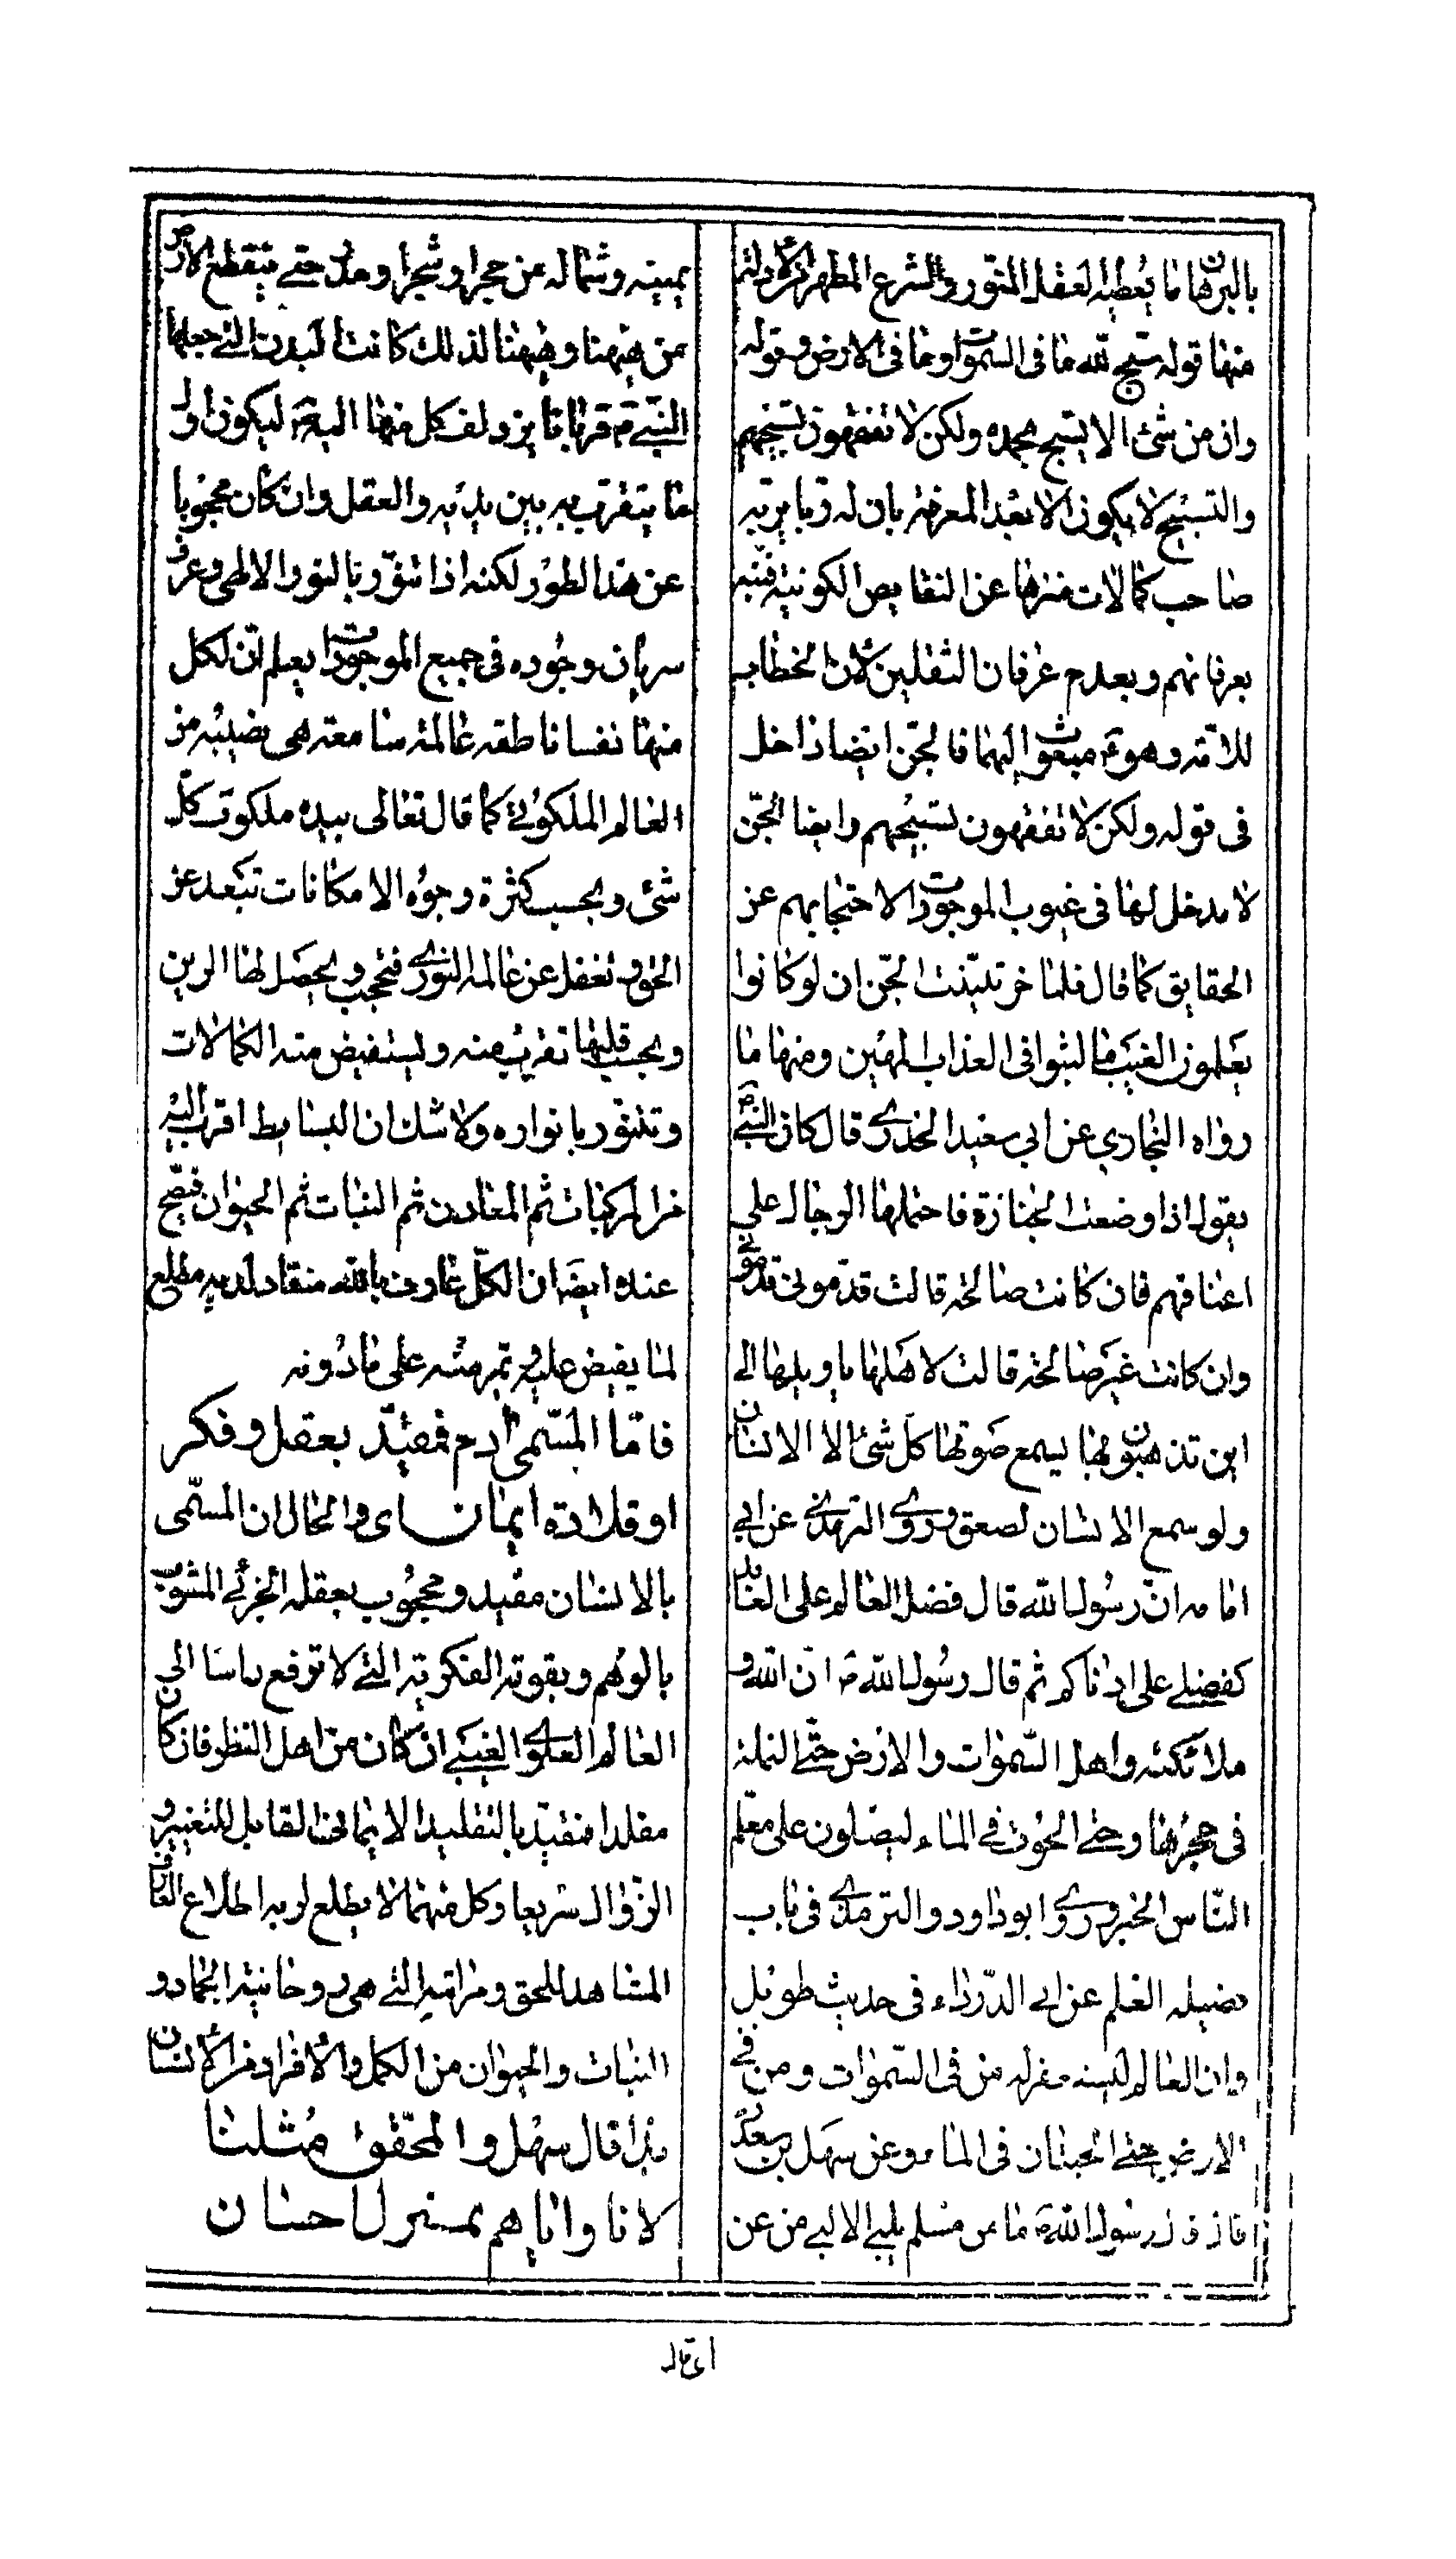 بالبرهان ما يعطيه العقل المنور والشرع المطهر من الادلة
منها قوله سبح لله ما فى السموات وما فى الارض وقوله
وان من شئ الا يسبح بحمده ولكن لا تفقهون تسبيحهم
والتسبيح لا يكون الا بعد المعرفة بان له ربا يربيه
صاحب كمالات منزها عن النقايص الكونية فنبه
بعرفانهم وبعدم عرفان الثقلين لان الخطاب
للامة وهو ع مبعوث اليهما فالجن ايضا داخل
فى قوله ولكن لا تفقهون تسبيحهم وايضا الجن
لا مدخل لها فى غيوب الموجودات لاحتجابهم عن
الحقايق كما قال فلما خر تبينت الجن ان لو كانوا
يعلمون الغيب ما لبثوا فى العذاب المهين ومنها ما
رواه البخاري عن ابي سعيد الخدري قال كان النبي ص
يقول اذا وضعت الجنازة فاحتملها الرجال على
اعناقهم فان كانت صالحة قالت قدمونى قدمونى
وان كانت غير صالحة قالت لاهلها يا ويلها الى
اين تذهبون بها يسمع صوتها كل شئ الا الانسان
ولو سمع الانسان لصعق وروى الترمذي عن ابي
امامه ان رسول الله قال فضل العالم على العابد
كفضلى على ادناكم ثم قال رسول الله ص ان الله و
ملائكته واهل السموات والارض حتى النملة
فى حجرها وحتى الحوت فى الماء ليصلون على معلم
الناس الخير وروى ابو داود والترمذي فى باب
فضيلة العلم عن ابي الدرداء فى حديث طويل
وان العالم ليستغفر له من فى السموات ومن فى
الارض حتى الحيتان فى الماء وعن سهل بن سعد
قال قال رسول الله ص ما من مسلم يلبي الا لبى من عن
يمينه وشماله من حجر او شجر او مدر حتى ينقطع الارض
من ههنا وههنا لذلك كانت البدن التى جعلها
النبي ص قربانا يزدلف كل منها اليه ليكون اول
ما يتقرب به بين يديه والعقل وان كان محجوبا
عن هذا الطور لكنه اذا تنور بالنور الالهى وعرف
سريان وجوده فى جميع الموجودات يعلم ان لكل
منها نفسا ناطقه عالمة سامعة هى نصيبه من
العالم الملكوتى كما قال تعالى بيده ملكوت كل
شئ وبحسب كثرة وجوه الامكانات تبعد عن
الحق وتغفل عن عالمه النوري فتحجب ويحصل لها الرين
وبحسب قلتها تقرب منه ويستفيض منه الكمالات
وتتنور بانواره ولا شك ان البسايط اقرب اليه
من المركبات ثم المعادن ثم النبات ثم الحيوان فصح
عنده ايضا ان الكل عارف بالله منقاد لديه مطلع
لما يفيض عليه ثم يمر منه على ما دونه
فاما المسمى ادم فمقيد بعقل وفكر
او قلادة ايمان اى والحال ان المسمى
بالانسان مقيد ومحجوب بعقله الجزئى المشوب
بالوهم وبقوته الفكرية التى لا ترفع راسا الى
العالم العلوي الغيبى ان كان من اهل النظر فان كان
مقلدا فتقيد بالتقليد الايمانى القابل للتغيير و
الزوال سريعا وكل منهما لا يطلع لربه اطلاع العارف
المشاهد للحق ومراتبه التى هى روحانية الجماد و
النبات والحيوان من الكمل والافراد من الانسان
بذا قال سهل والمحقق مثلنا
لانا واياهم بمنزل احسان
اى قال